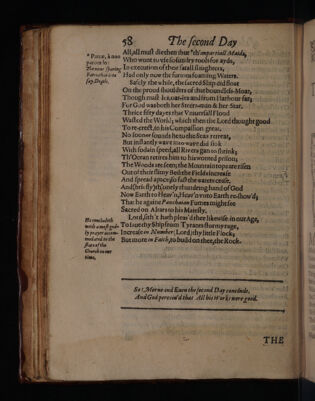 58 The second Day
All, all must die then that
Who wont to use so sundry tools for ayds,
In execution of their fatall slaughters,
Had only now the furious foaming Waters.
Safely the while, the sacred Ship did float
On the proud shoulders of that boundles-Moat,
Though mast-les, oar-les and from Harbour far;
For God was both her Steers-man & her Star.
Thrice fifty dayes that Universall Flood
Wasted the World; which then the Lord thought good
To re-erect, in his Compassion great.
No sooner sounds he to the Seas retreat,
But instantly wave into wave did sink
With sodain speed, all Rivers gan to shrink;
Th'Ocean retires him to his wonted prison;
The Woods are seen; the Mountain tops are risen
Out of their slimy Bed: the Fields increase
And spread apace: so fast the waters cease.
And (briefly) th'onely thundring hand of God
Now Earth to Heav'n, Heav'n vnto Earth re-show'd;
That he againe Panchaian Fumes might see
Sacred on Altars to his Maiesty.
Lord, sith 't hath pleas'd thee likewise in our Age,
To saue thy Ship from Tyrants stormy rage,
Increase in Number, Lord, thy little Flock;
But more in Faith, to build on thee, the Rock.
He concludeth
with a most god-
ly prayer accom-
moded to the
state of the
Church in our
time,
So Morne and Euen the second Day conclude,
And God perceiv'd that All his Works were good.
THE